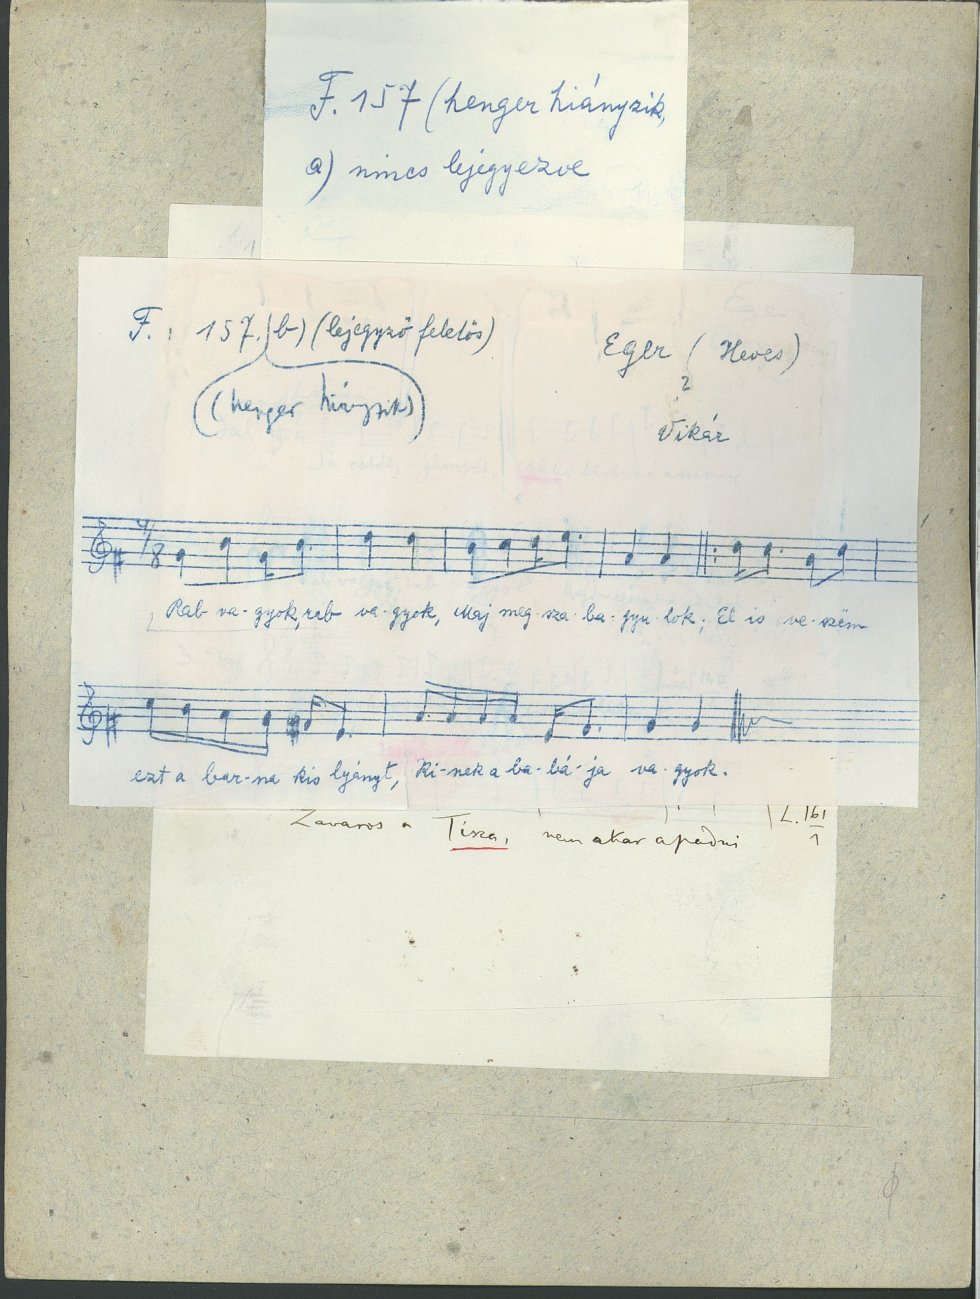 F. 157 (henger hiányzik,
a) nincs lejegyezve
F. 157. (b) (lejegyző felelős)
(henger hiányzik)
Eger (Heves)
?
Vikár
4/8
Rab va-gyok, rab va-gyok, Maj meg-sza-ba-gyu-lok; El is ve-szëm
ezt a bar-na kis lyányt, Ki-nek a ba-bá-ja va-gyok.
Zavaros a Tisza, nem akar apadni
L. 161
1